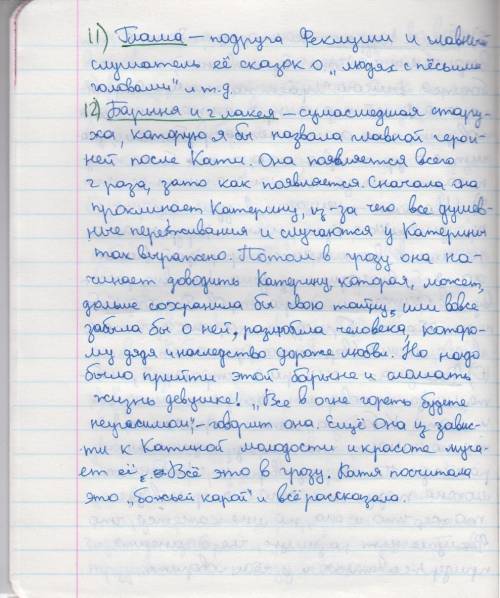 11) Глаша – подруга Феклуши и главный
слушатель её сказок о „людях с пёсьими
головами" и т.д.
12) Барыня и 2 лакея – сумасшедшая стару-
ха, которую я бы назвала главной герои-
ней после Кати. Она появляется всего
2 раза, зато как появляется. Сначала она
проклинает Катерину, из-за чего все душев-
ные переживания и случаются у Катерины
так выражено. Потом в грозу она на-
чинает доводить Катерину, которая, может,
дольше сохранила бы свою тайну, или вовсе
забыла бы о ней, разлюбила человека, которо-
му дядя и наследство дороже любви. Но надо
было прийти этой барыне и сломать
жизнь девушке! „Все в огне гореть будете
неугасимом", – говорит она. Ещё она из завис-
ти к Катиной молодости и красоте муча-
ет её. Всё это в грозу. Катя посчитала
это „божьей карой" и всё рассказала.